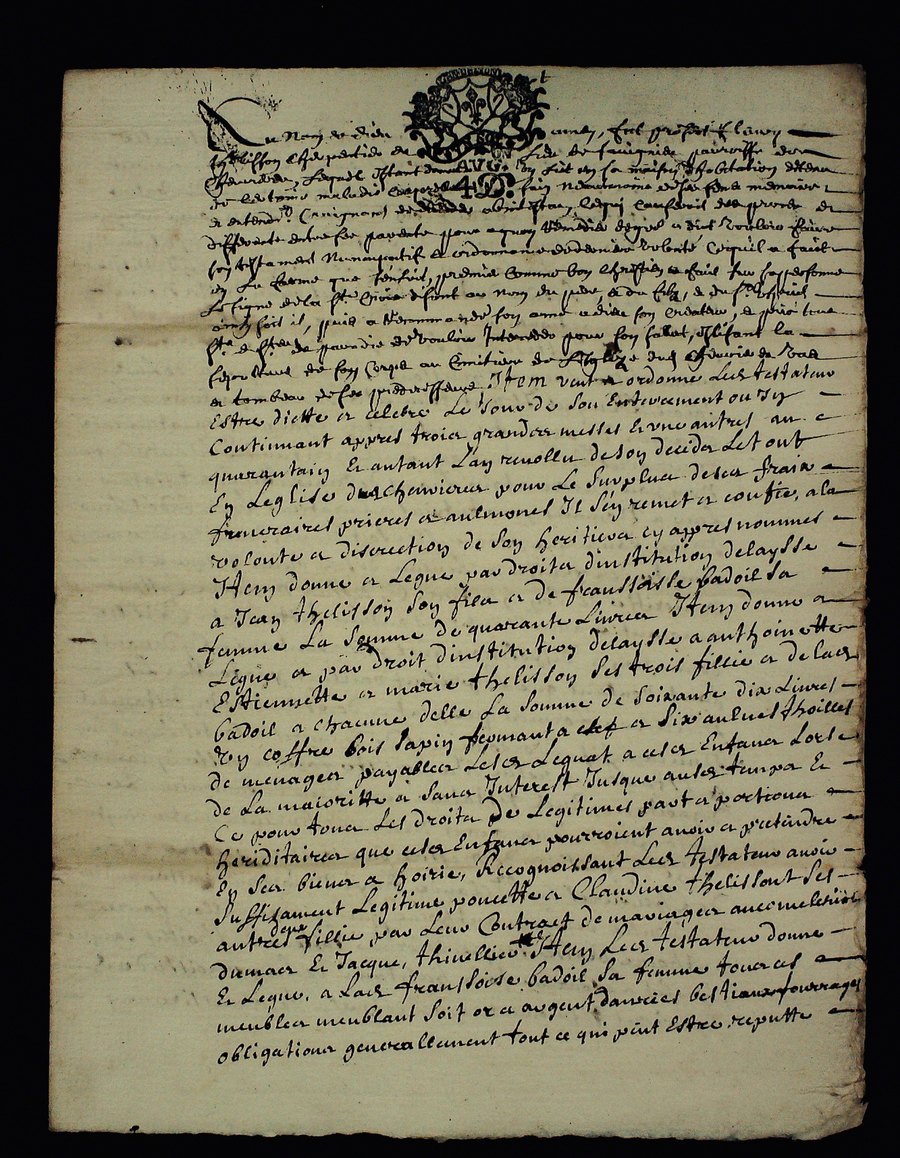 Au Nom de dieu amen, fut present Claude
thelisson
Chevrieres Lequel Estant dans son lict en sa maison d'habitation detenu
de certaine maladie Corporel sain Neantmoins de ses sens memoire
et entendem^t Craignant de deceder abintestat, lequi causeroit des proces et
differents entre ses parents pour a quoy Remedier degré a dict vouloir faire
son testament Nuncupatif et ordonnance de derniere volonté Cequil a faict
en La forme que sensuit, premier Comme bon Chrestien a faict sur sa personne
Le signe de la S^te Croix disant au nom du pere et du filz, et du S^t Esprit
ainsi soit il, puis a Recommandé son ame a dieu son Createur, et prie tous
S^ts et S^tes de paradis de vouloir Interceder pour son salut, Eslisant la
sepulture de son Corps au Cimitiere de Leglize dud Chevrieres
et tombeau de ses predecesseurs Item veut et ordonne Led testateur
Estre diette et celebré Le Jour de Son Enterrement ou Jy
Continuant appres troier grander messes Et une autres au
quarantain Et autant Lan revollu de son decéder Le tout
En Leglise dud chevrierer pour Le Surplus de ser fraix
funeraires prieres et aulmones Il s'en remet et confie, a la
volonte et discrection de Son heritier cy appres nommes
Item donne et Legue par droit d'institution delaysse
a Jean thelisson Son filz et de franssoisse badoil sa
femme La Somme de quarante Livres Item donne et
Legue et par droit d'institution delaysse a anthoinette
Estiennette et marie thelisson ses trois fillie et de lad
badoil a chacune delle La Somme de Soixante dix Livres
Un coffre bois sapin fermant a clef et Six aulnes thoilles
de menager payabler Lesd Legat a cesd Enfans Lors
de La majoritte et sans Interest Jusque ausd tempr Et
Ce pour tous Les droits De Legitimes part et portions
heriditaires que cesd Enfans pourroient avoir et pretendre
En Ses biens et hoirie, Recognoissant Led testateur avoir
suffisament Legitime poncette et Claudine thelisson Ses
autres deux fillie par Leur Contract de mariages avec
dumas Et Jacque, thivellier Item Led testateur donne
Et Legue, a Lad franssoise badoil sa femme tous ces
meubles meublant Soit or et argent danrées bestiaux fourrages
obligations generallement tout ce qui peut Estre reputte
AVG.